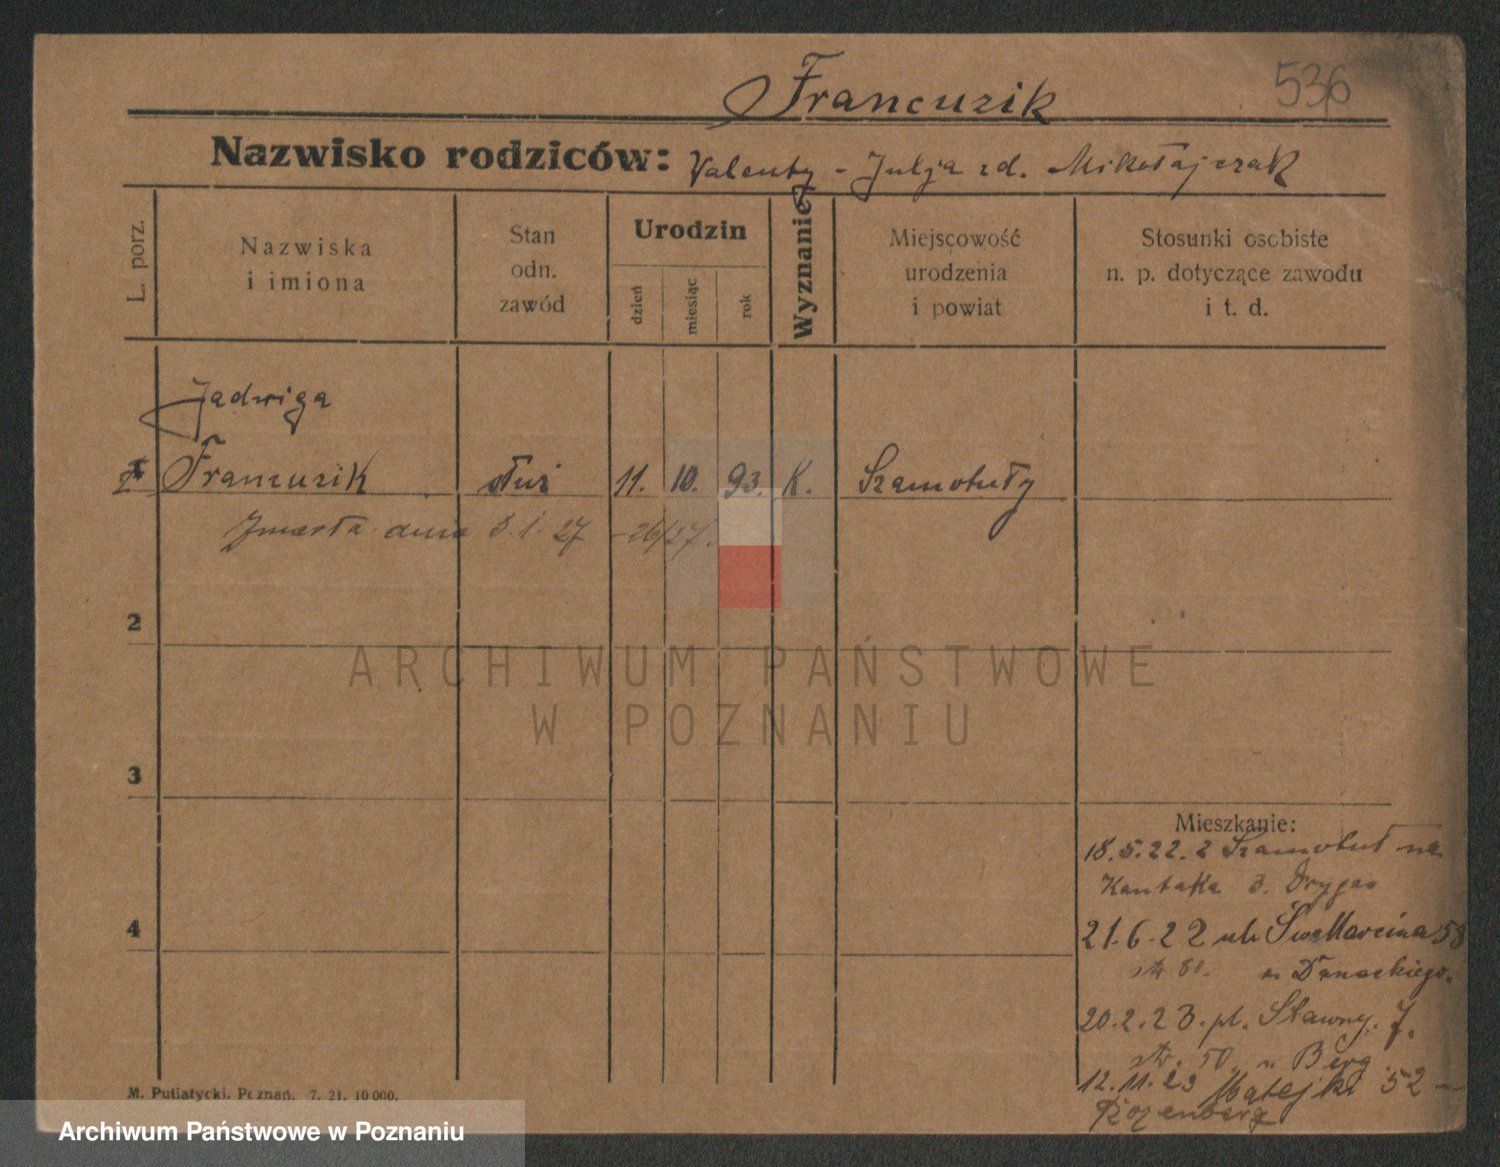 536
Francuzik
Nazwisko rodziców: Valenty - Julja zd. Mikołajczak
L. porz.
Nazwiska
i imiona
Stan
odn.
zawód
Urodzin
dzień
miesiąc
rok
Wyznanie
Miejscowość
urodzenia
i powiat
Stosunki osobiste
n. p. dotyczące zawodu
i t. d.
Jadwiga
1 Francuzik służ 11. 10. 93. K. Szamotuły
Zmarła dnia 3.1.27 - 26/27.
2
ARCHIWUM PAŃSTWOWE
W POZNANIU
3
Mieszkanie:
18.5.22. z Szamotuł na
Kantaka 3. Drygas
4
21.6.22 ul. Św. Marcina 58
u
20.2.23. pl. Stawny. 7.
str. 50. u Berg
12.11.23 Matejki 52 -
Rozenberg
M. Putiatycki, Poznań. 7. 21. 10 000.
Archiwum Państwowe w Poznaniu